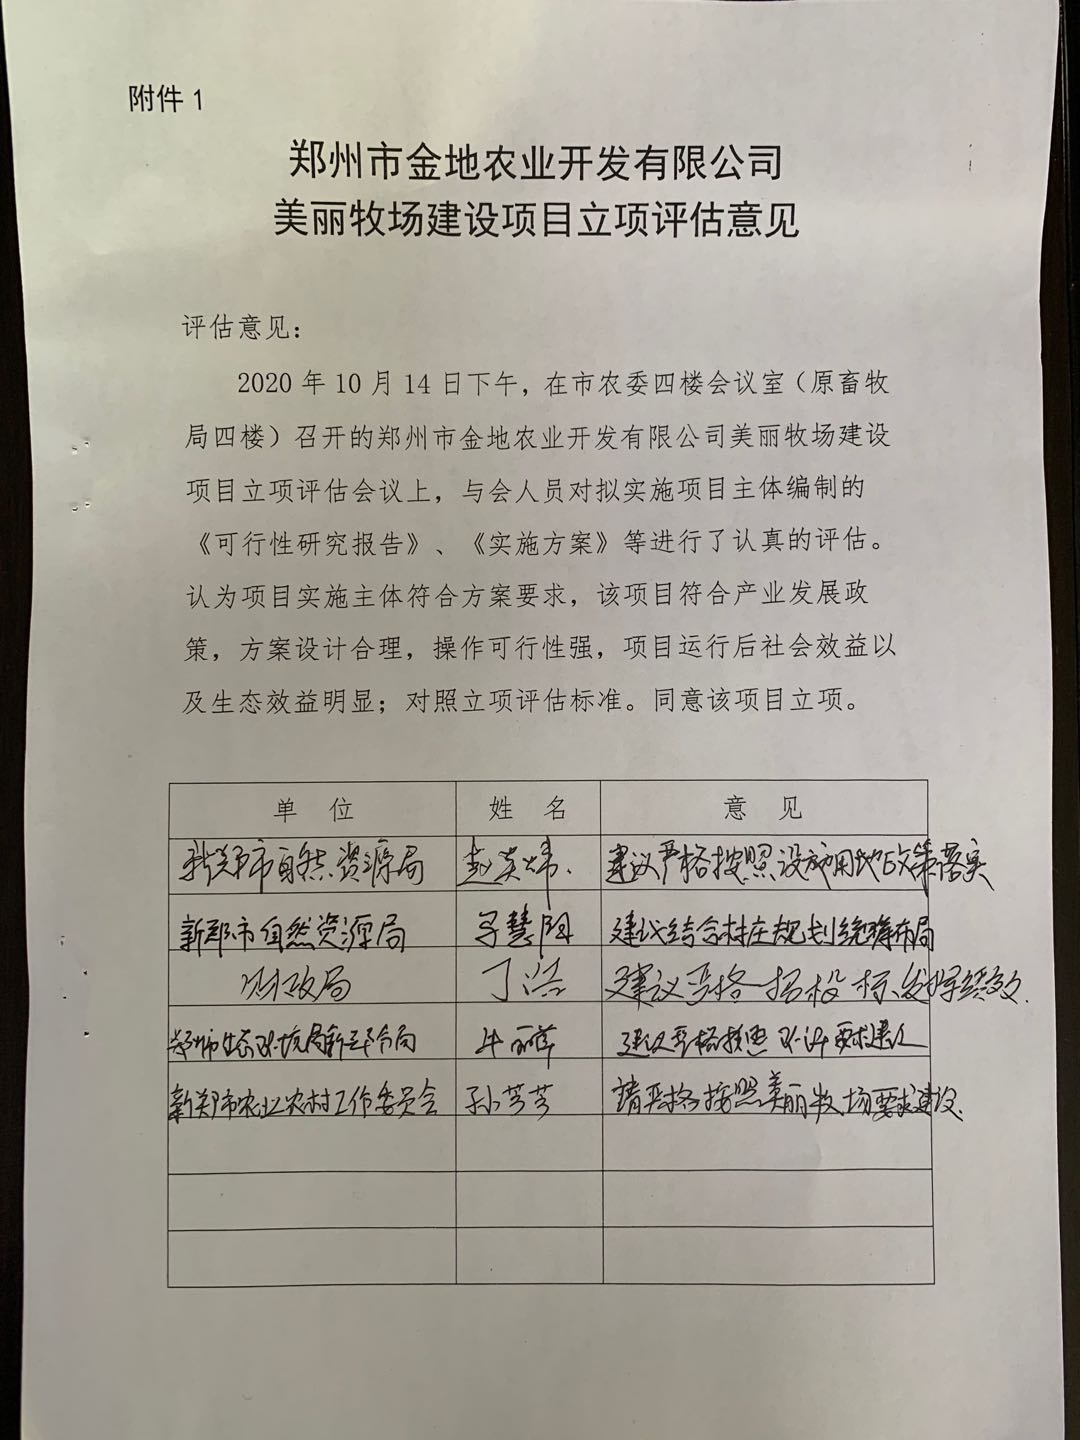 附件 1
郑州市金地农业开发有限公司
美丽牧场建设项目立项评估意见
评估意见：
2020 年 10 月 14 日下午，在市农委四楼会议室（原畜牧
局四楼）召开的郑州市金地农业开发有限公司美丽牧场建设
项目立项评估会议上，与会人员对拟实施项目主体编制的
《可行性研究报告》、《实施方案》等进行了认真的评估。
认为项目实施主体符合方案要求，该项目符合产业发展政
策，方案设计合理，操作可行性强，项目运行后社会效益以
及生态效益明显；对照立项评估标准。同意该项目立项。
单 位 姓 名 意 见
新郑市自然资源局 赵 建议严格按照设施用地政策落实
新郑市自然资源局 慧阳 建议结合村庄规划统筹布局
财政局 丁浩 建议严格招投标，发挥绩效.
郑州市生态环境局新郑分局 牛丽萍 建议严格按照环评要求建设
新郑市农业农村工作委员会 孙芳芳 请严格按照美丽牧场要求建设.